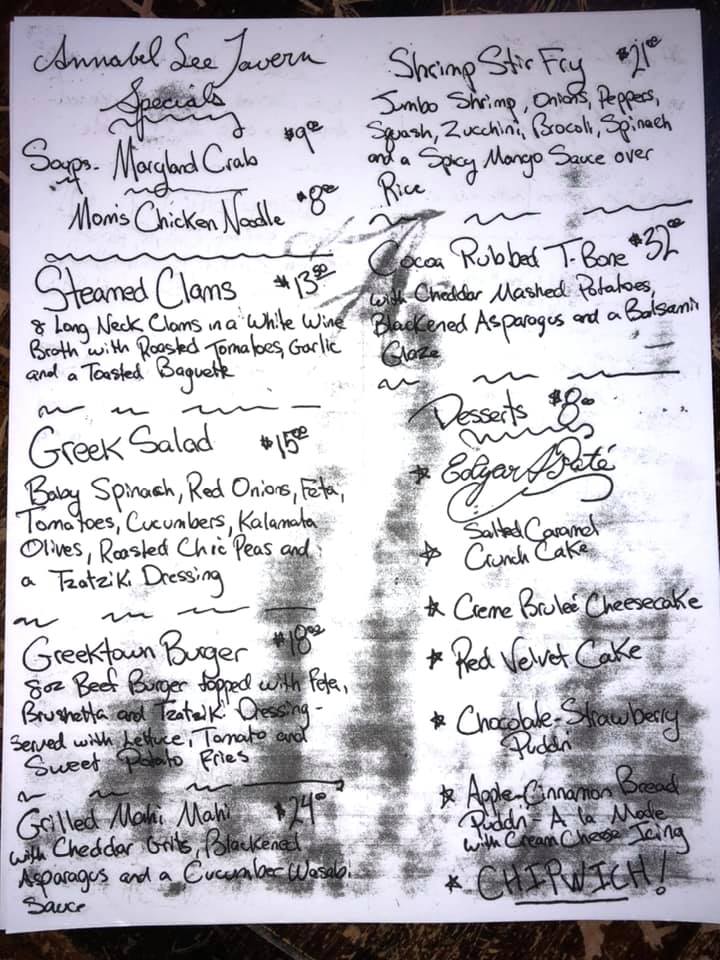 Annabel Lee Tavern
Specials
Soups- Maryland Crab $9.00
Mom's Chicken Noodle $8.00
Steamed Clams $13.00
8 Long Neck Clams in a White Wine
Broth with Roasted Tomatoes, Garlic
and a Toasted Baguette
Greek Salad $15.00
Baby Spinach, Red Onions, Feta,
Tomatoes, Cucumbers, Kalamata
Olives, Roasted Chic Peas and
a Tzatziki Dressing
Greektown Burger $18.00
8oz Beef Burger topped with Feta,
Brushetta and Tzatziki Dressing-
Served with Lettuce, Tomato and
Sweet Potato Fries
Grilled Mahi Mahi $24.00
with Cheddar Grits, Blackened
Asparagus and a Cucumber Wasabi
Sauce
Shrimp Stir Fry $21.00
Jumbo Shrimp, Onions, Peppers,
Squash, Zucchini, Brocoli, Spinach
and a Spicy Mango Sauce over
Rice
Cocoa Rubbed T-Bone $32.00
with Cheddar Mashed Potatoes,
Blackened Asparagus and a Balsamic
Glaze
Desserts $8.00
Edgar's Paté
Salted Caramel
Crunch Cake
Creme Bruleé Cheesecake
Red Velvet Cake
Chocolate-Strawberry
Puddn'
Apple-Cinnamon Bread
Puddn'- A la Mode
with Cream Cheese Icing
CHIPWICH!